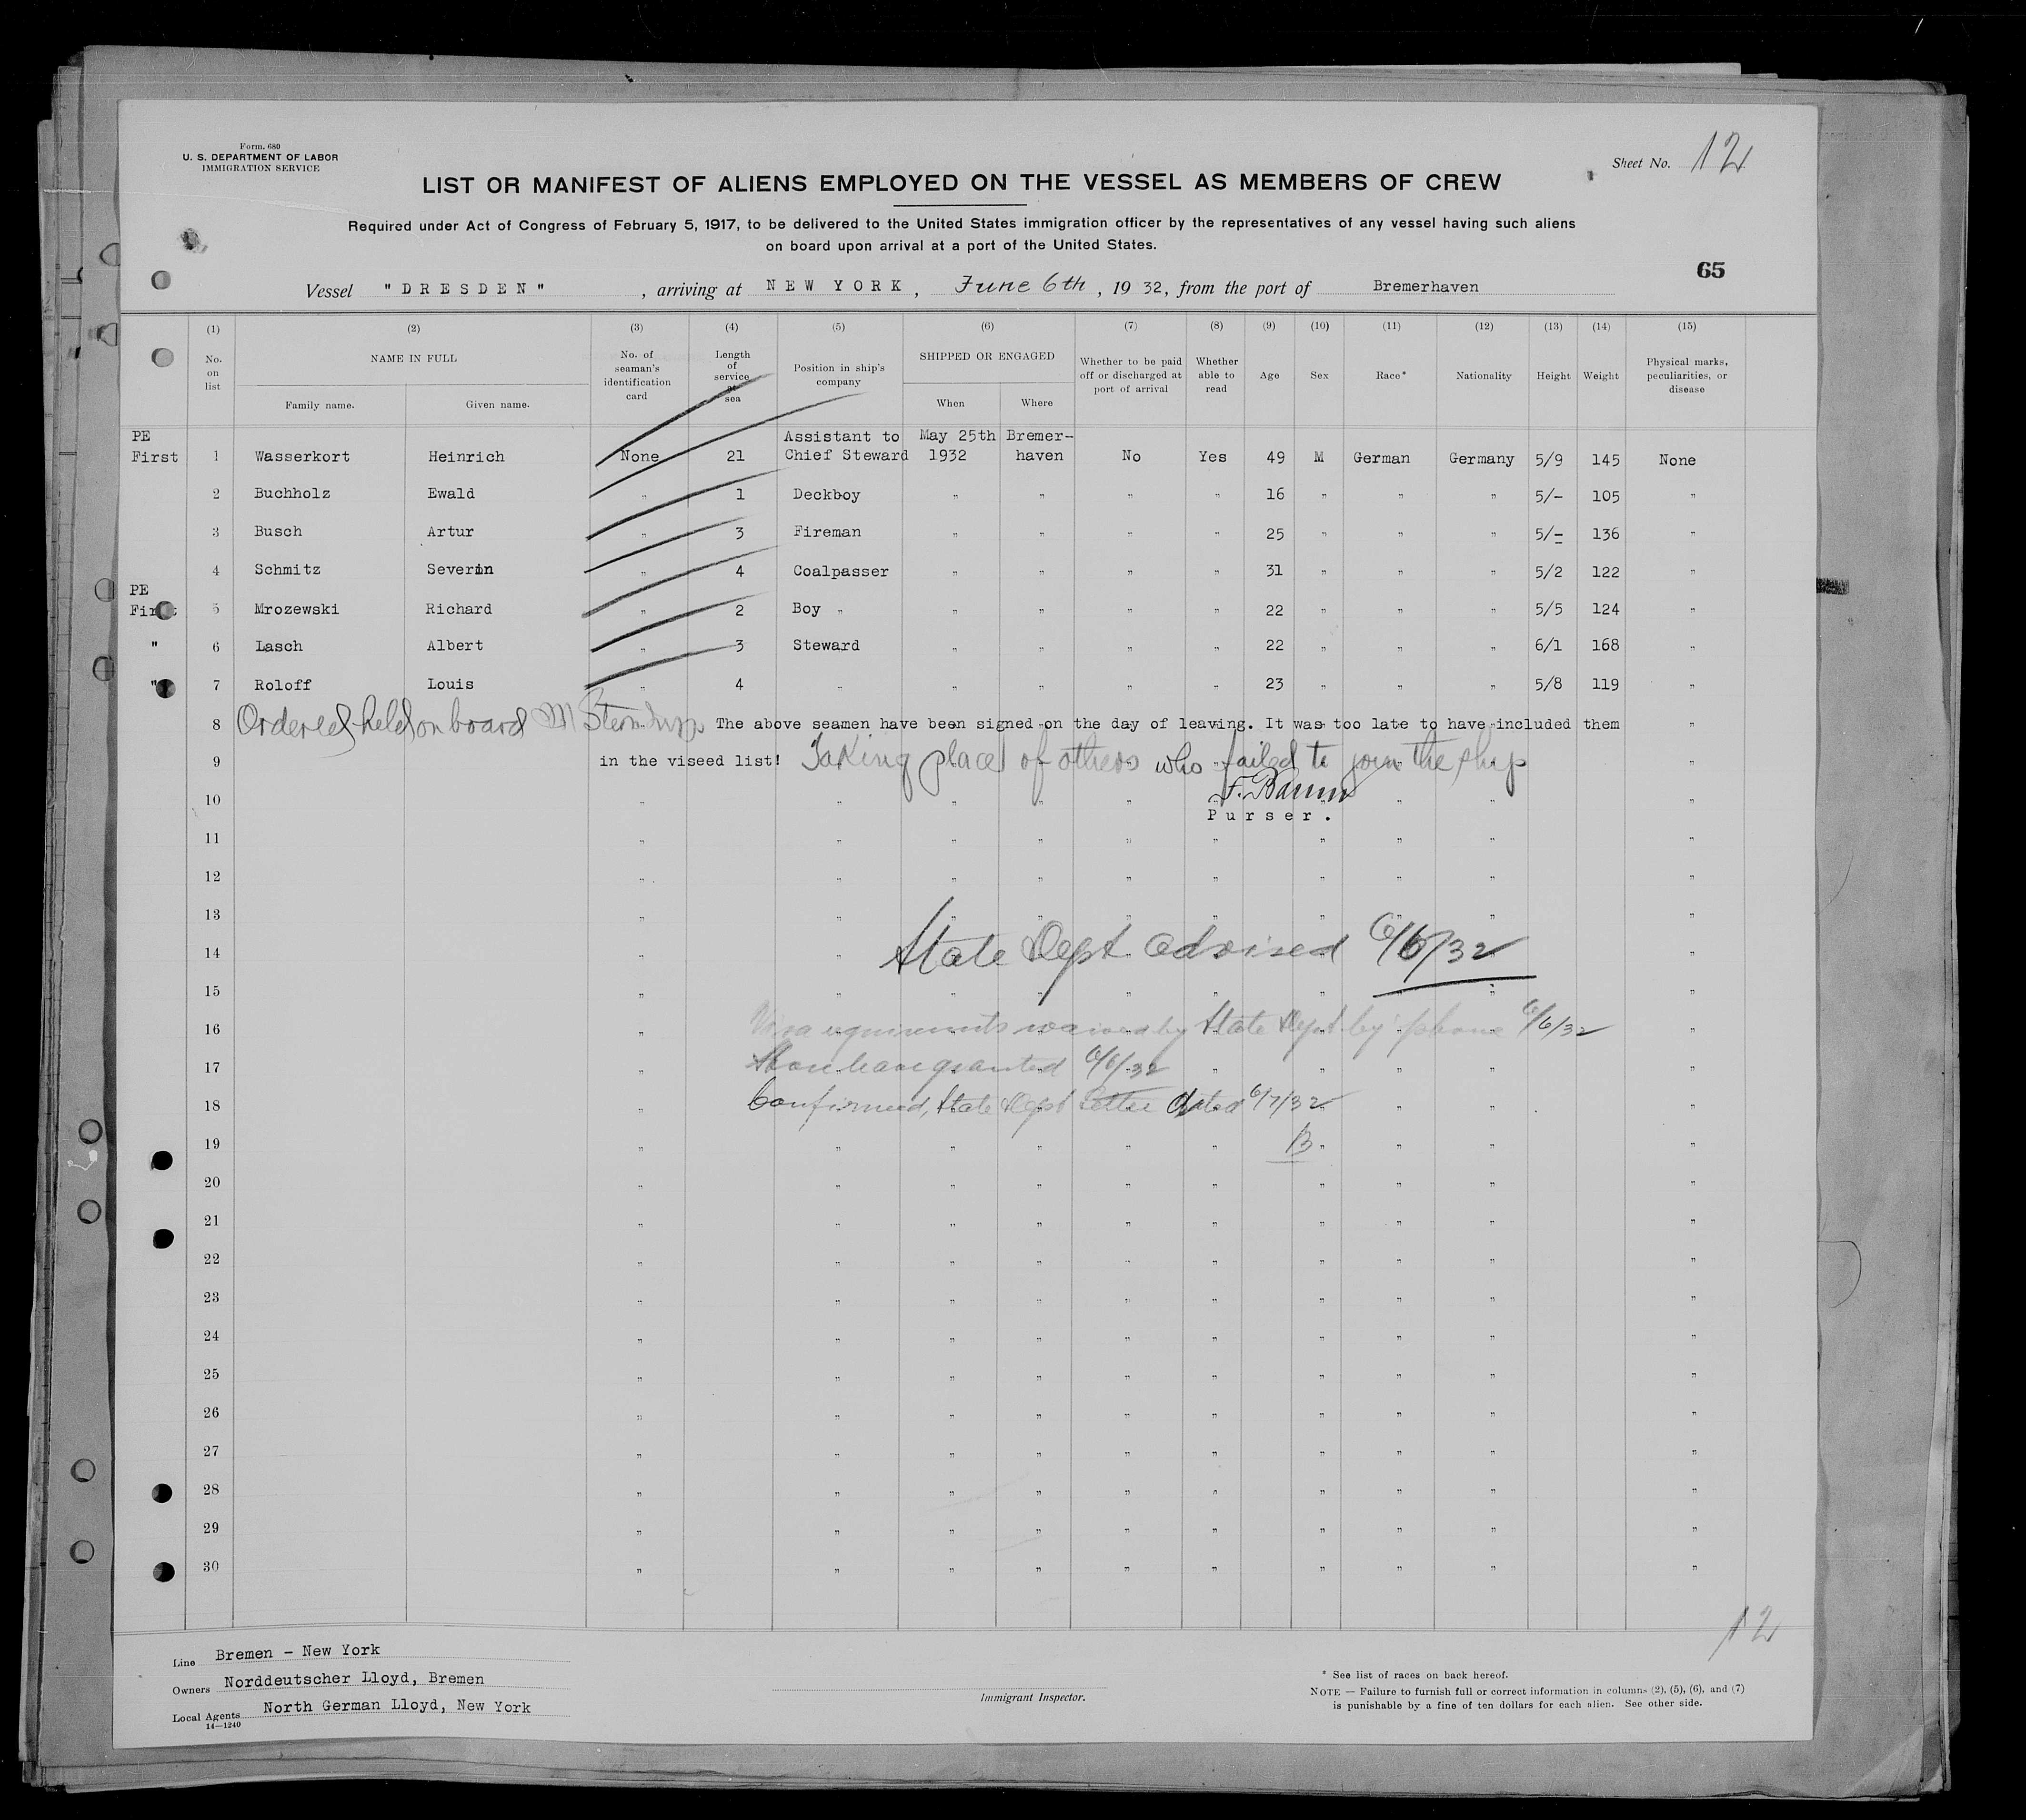 Form. 680
U. S. DEPARTMENT OF LABOR
IMMIGRATION SERVICE
Sheet No. 12
LIST OR MANIFEST OF ALIENS EMPLOYED ON THE VESSEL AS MEMBERS OF CREW
Required under Act of Congress of February 5, 1917, to be delivered to the United States immigration officer by the representatives of any vessel having such aliens
on board upon arrival at a port of the United States.
65
Vessel "DRESDEN", arriving at NEW YORK, June 6th, 1932, from the port of Bremerhaven
(1) (2) (3) (4) (5) (6) (7) (8) (9) (10) (11) (12) (13) (14) (15)
No. on list NAME IN FULL Family name. Given name. No. of seaman's identification card Length of service at sea Position in ship's company SHIPPED OR ENGAGED When Where Whether to be paid off or discharged at port of arrival Whether able to read Age Sex Race* Nationality Height Weight Physical marks, peculiarities, or disease
PE Assistant to May 25th Bremer-
First 1 Wasserkort Heinrich None 21 Chief Steward 1932 haven No Yes 49 M German Germany 5/9 145 None
2 Buchholz Ewald " 1 Deckboy " " " " 16 " " " 5/- 105 "
3 Busch Artur " 3 Fireman " " " " 25 " " " 5/- 136 "
4 Schmitz Severin " 4 Coalpasser " " " " 31 " " " 5/2 122 "
PE
First 5 Mrozewski Richard " 2 Boy " " " " " 22 " " " 5/5 124 "
" 6 Lasch Albert " 3 Steward " " " " 22 " " " 6/1 168 "
" 7 Roloff Louis " 4 " " " " " 23 " " " 5/8 119 "
8 Ordered held on board The above seamen have been signed on the day of leaving. It was too late to have included them "
9 in the viseed list! Taking place of others who failed to join the ship "
10 " " " " " F. Baum " " " "
Purser.
11 " " " " " " " " " "
12 " " " " " " " " " "
13 " " " " " " " " " "
14 " " State Dept advised 6/6/32 "
15 " " " " " " " " " "
16 " Visa requirements waived by State Dept by phone 6/6/32 "
17 " Shore leave granted 6/6/32 " " " " "
18 " Confirmed, State Dept letter dated 6/7/32 " " "
19 " " " " " " B " " " "
20 " " " " " " " " " "
21 " " " " " " " " " "
22 " " " " " " " " " "
23 " " " " " " " " " "
24 " " " " " " " " " "
25 " " " " " " " " " "
26 " " " " " " " " " "
27 " " " " " " " " " "
28 " " " " " " " " " "
29 " " " " " " " " " "
30 " " " " " " " " " "
12
Line Bremen - New York
Owners Norddeutscher Lloyd, Bremen
Local Agents North German Lloyd, New York
14—1240
Immigrant Inspector.
* See list of races on back hereof.
NOTE — Failure to furnish full or correct information in columns (2), (5), (6), and (7)
is punishable by a fine of ten dollars for each alien. See other side.